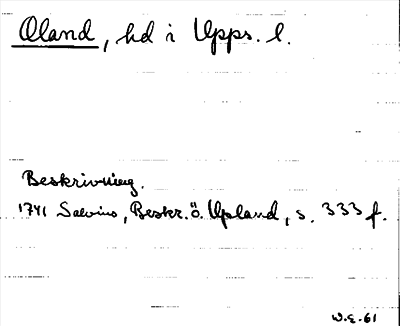 Oland, hd i Upps. l.
Beskrivning.
1741 Salvius, Beskr. ö. Upland, s. 333 f.
W.E. -61